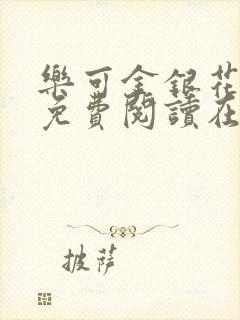 樂可金銀花
免費閱讀在
披薩